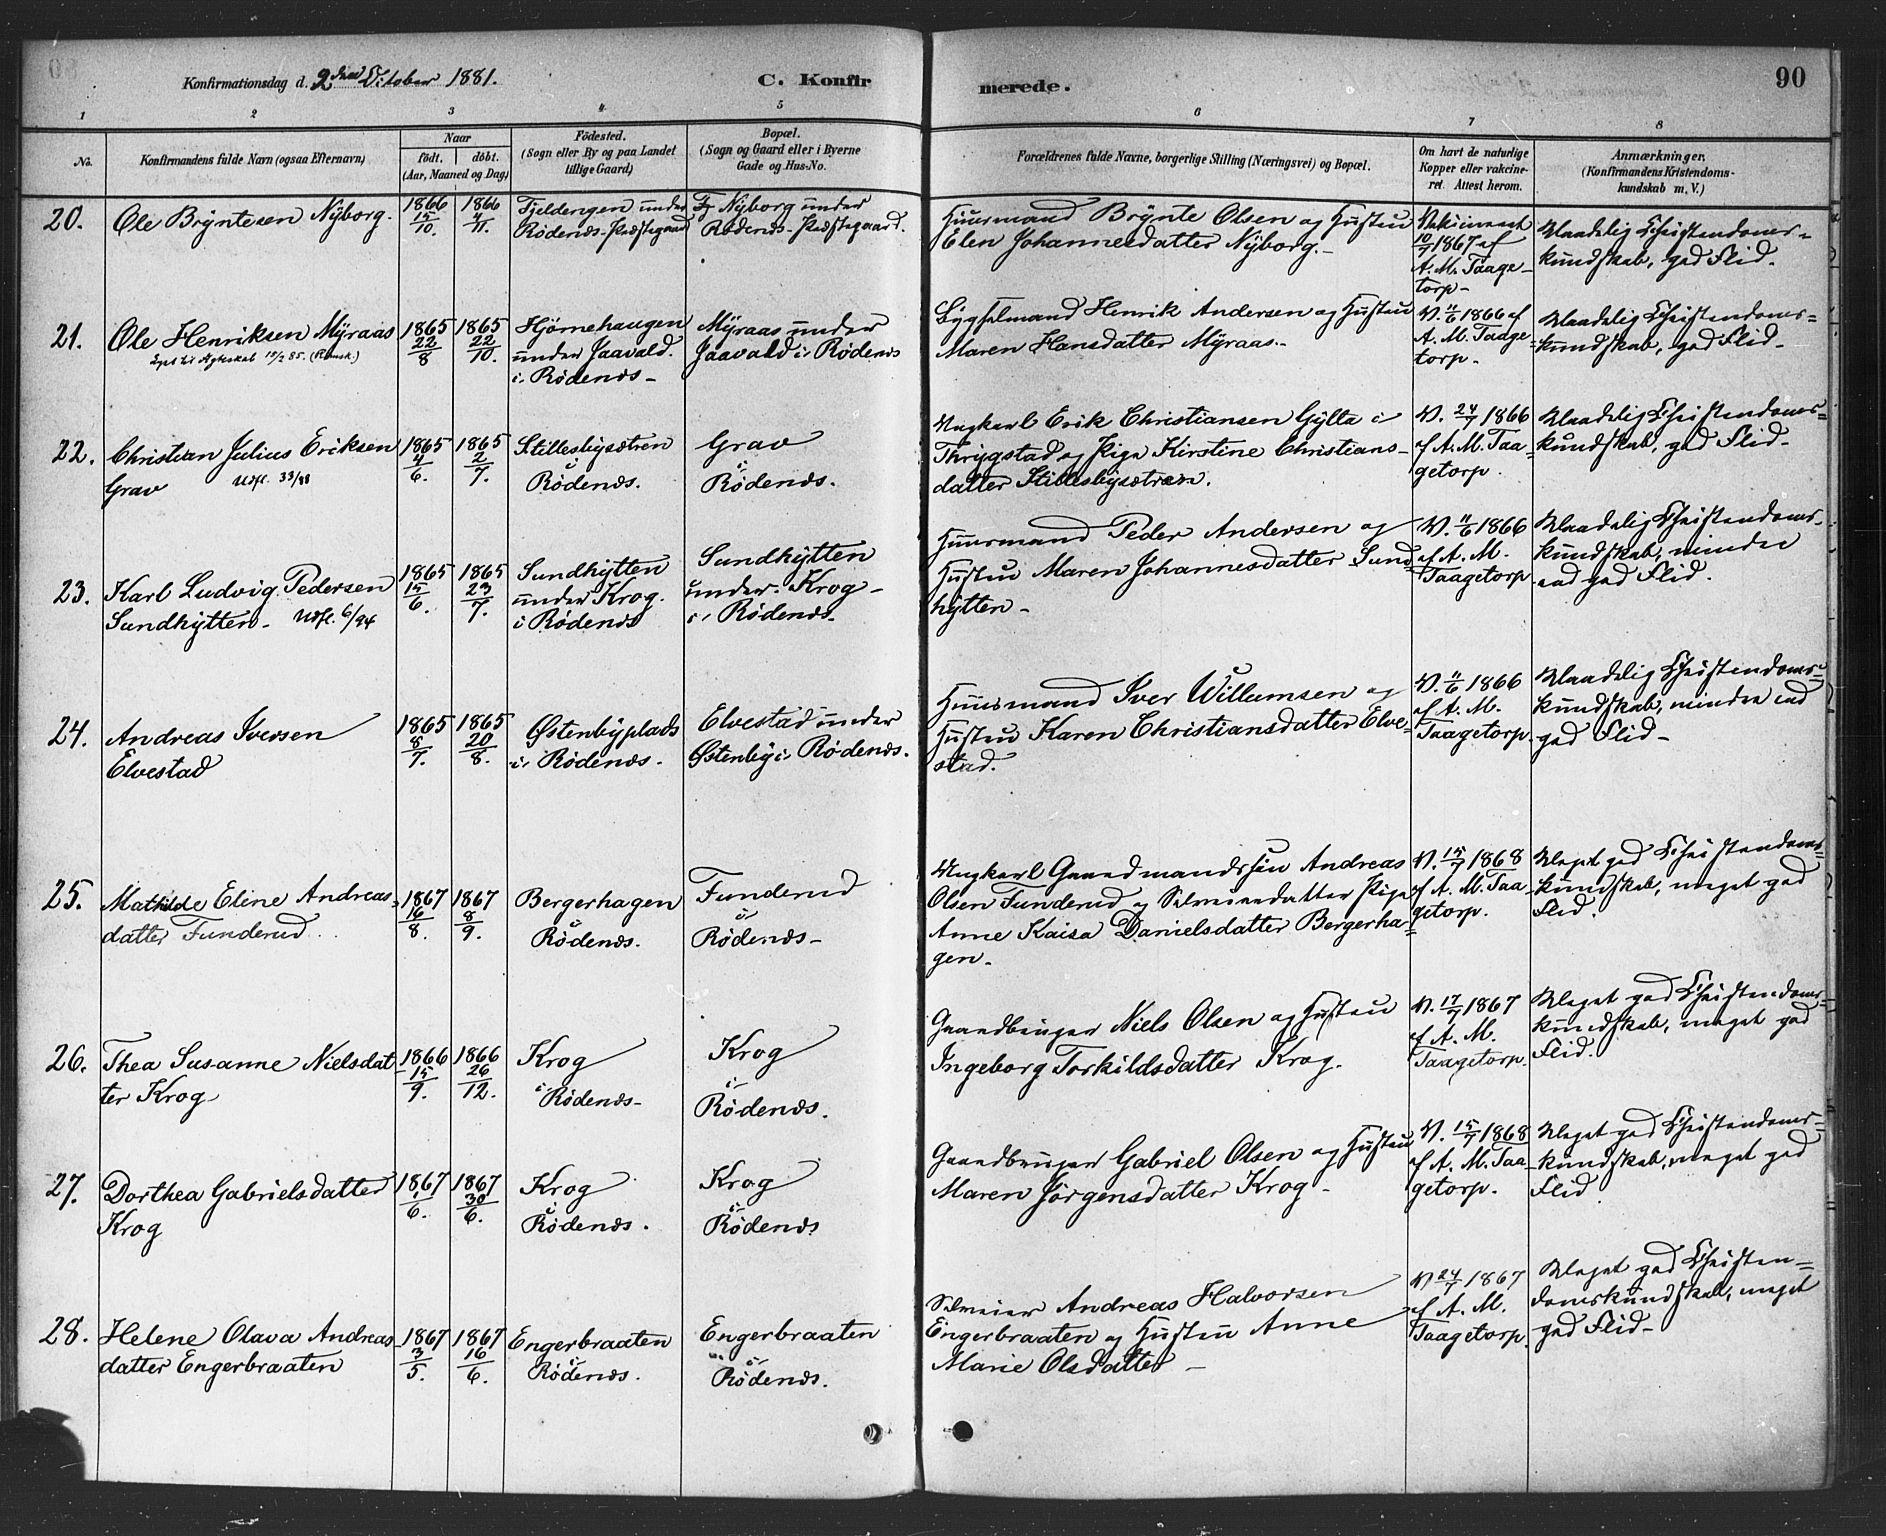 Konfirmationsdag d. 2den October 1881.
C. Konfirmerede.
90
1 2 3 4 5 6 7 8
No.
Konfirmandens fulde Navn (ogsaa Efternavn)
Naar
födt. | döbt.
(Aar, Maaned og Dag)
Födested.
(Sogn eller By og paa Landet
tillige Gaard)
Bopæl.
(Sogn og Gaard eller i Byerne
Gade og Hus-No.
Forældrenes fulde Navne, borgerlige Stilling (Næringsvei) og Bopæl.
Om havt de naturlige
Kopper eller vakcine-
ret. Attest herom.
Anmærkninger.
(Konfirmandens Kristendoms-
kundskab m. V.)
20.
Ole Bryntesen Nyborg.
1866 15/10.
1866 4/11.
Fjeldengen under
Rödenæs-Præstegaard
Nyborg under
Rödenæs-Præstegaard.
Huusmand Brynte Olsen og Hustru
Elen Johannesdatter Nyborg.-
Vakcineret
10/7 1867 af
A. M. Taage-
torp-
Maadelig Christendoms-
kundskab, god Flid.
21.
Ole Henriksen Myraas
1865 22/8
1865 22/10.
Hjørnehaugen
under Jaavald.
i Rödenæs-
Myraas under
Jaavald i Rödenæs
Bygselmand Henrik Andersen og Hustru
Maren Hansdatter Myraas.-
V. 11/6 1866 af
A. M. Taage-
torp.-
Maadelig Christendoms-
kundskab, god Flid-
22.
Christian Julius Eriksen
Grav
Udfl. 33/88
1865 4/6.
1865 2/7.
Stillesbysætren
i
Rödenæs.
Grav
i
Rödenæs.
Ungkarl Erik Christiansen Gylta i
Thrygstad og Pige Kirstine Christians-
datter Stillesbysætren.
V. 24/7 1866
af A. M. Taa-
getorp.
Maadelig Christendoms-
kundskab, god Flid-
23.
Karl Ludvig Pedersen
Sundhytten- Udfl. 6/94
1865 15/6.
1865 23/7.
Sundhytten
under Krog.
i Rödenæs
Sundhytten
under Krog-
i Rödenæs.
Huusmand Peder Andersen og
Hustru Maren Johannesdatter Sund
hytten-
V. 11/6 1866
af A. M.
Taagetorp
Maadelig Christendoms-
kundskab, mindre
end god Flid.
24.
Andreas Iversen
Elvestad
1865 8/7.
1865 20/8.
Østenbyplads
i Rödenæs.
Elvestad under
Østenby i Rödenæs.
Huusmand Iver Willumsen og
Hustru Karen Christiansdatter Elve-
stad.
V. 11/6 1866
af A. M.
Taagetorp.
Maadelig Christendoms-
kundskab, mindre end
god Flid-
25.
Mathilde Eline Andreas-
datter Funderud.
1867 16/8.
1867 8/9.
Bergerhagen
i
Rödenæs.
Funderud
i
Rödenæs-
Ungkarl Gaardmandssøn Andreas
Olsen Funderud og Selveierdatter Pige
Anne Kaisa Danielsdatter Bergerha-
gen-
V. 15/7 1868
af A. M. Taa-
getorp.
Meget god Christendoms-
kundskab, meget god
Flid.
26.
Thea Susanne Nielsdat-
ter Krog
1866 15/9.
1866 26/12.
Krog
i Rödenæs-
Krog
i
Rödenæs.
Gaardbruger Niels Olsen og Hustru
Ingeborg Torkildsdatter Krog.
V. 17/7 1867
af A. M.
Taagetorp.
Meget god Christendoms-
kundskab, meget god
Flid.
27.
Dorthea Gabrielsdatter
Krog
1867 1/6.
1867 30/6.
Krog
i
Rödenæs.
Krog
i
Rödenæs
Gaardbruger Gabriel Olsen og Hustru
Maren Jørgensdatter Krog-
V. 15/7 1868
af A. M. Taa-
getorp.
Meget god Christendoms-
kundskab, meget god
Flid.
28.
Helene Olava Andreas-
datter Engerbraaten
1867 3/5.
1867 16/6.
Engerbraaten
i
Rödenæs.
Engerbraaten
i
Rödenæs.
Selveier Andreas Halvorsen
Engerbraaten og Hustru Anne
Marie Olsdatter-
V 24/7 1867
af A. M.
Taagetorp.
Meget god Christen-
domskundskab, meget
god Flid-